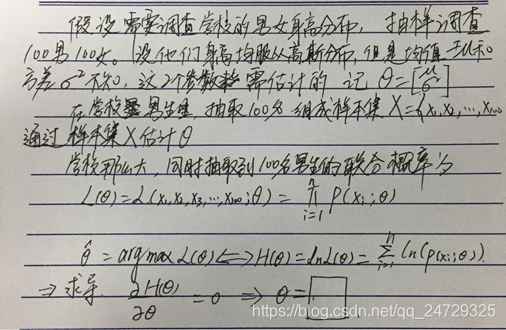 假设需要调查学校的男女身高分布, 抽样调查
100男100女。设他们身高均服从高斯分布,但是均值μ和
方差σ²不知。这2个参数是需估计的 记 θ=[μ σ]
在学校里男生里,抽取100名组成样本集 X={x₁,x₂,…,x₁₀₀
通过样本集X估计θ
学校那么大,同时抽取到100名男生的联合概率为
L(θ)=L(x₁,x₂,x₃,…,x₁₀₀;θ)= ∏ⁿᵢ₌₁ P(xᵢ;θ)
θ̂ = argmax L(θ) ⟺ H(θ)=lnL(θ)= ∑ⁿᵢ₌₁ ln(p(xᵢ;θ))
⇒ 求导 ∂H(θ)/∂θ =0 ⇒ θ=
https://blog.csdn.net/qq_24729325